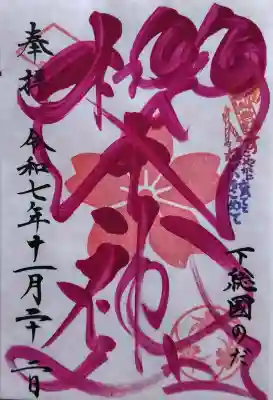 下総國のだ
櫻木神社
奉拝
令和七年十一月二十二日